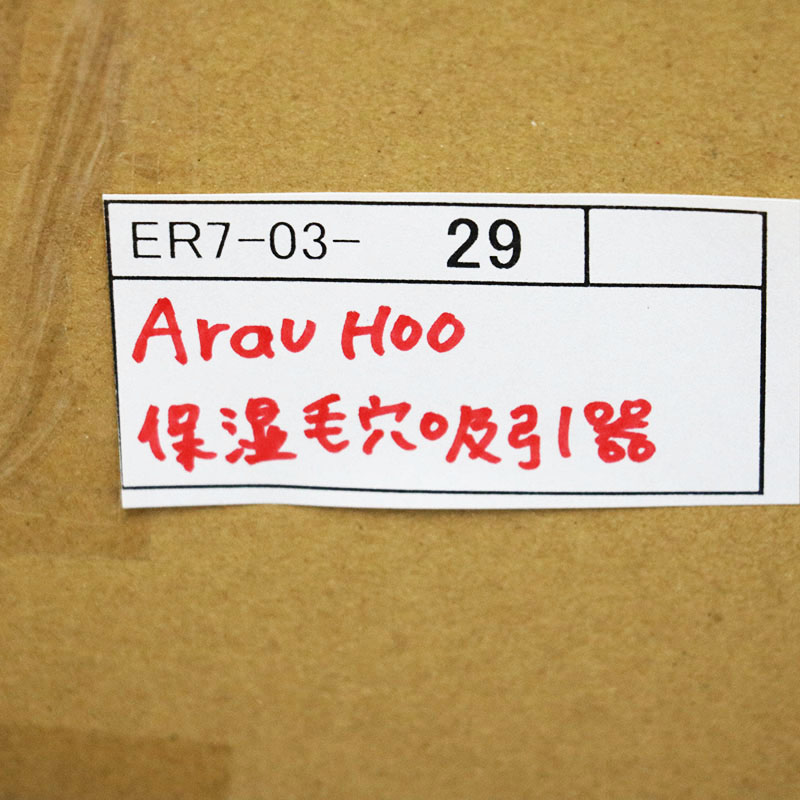 ER7-03- 29
Arau Hoo
保湿毛穴吸引器